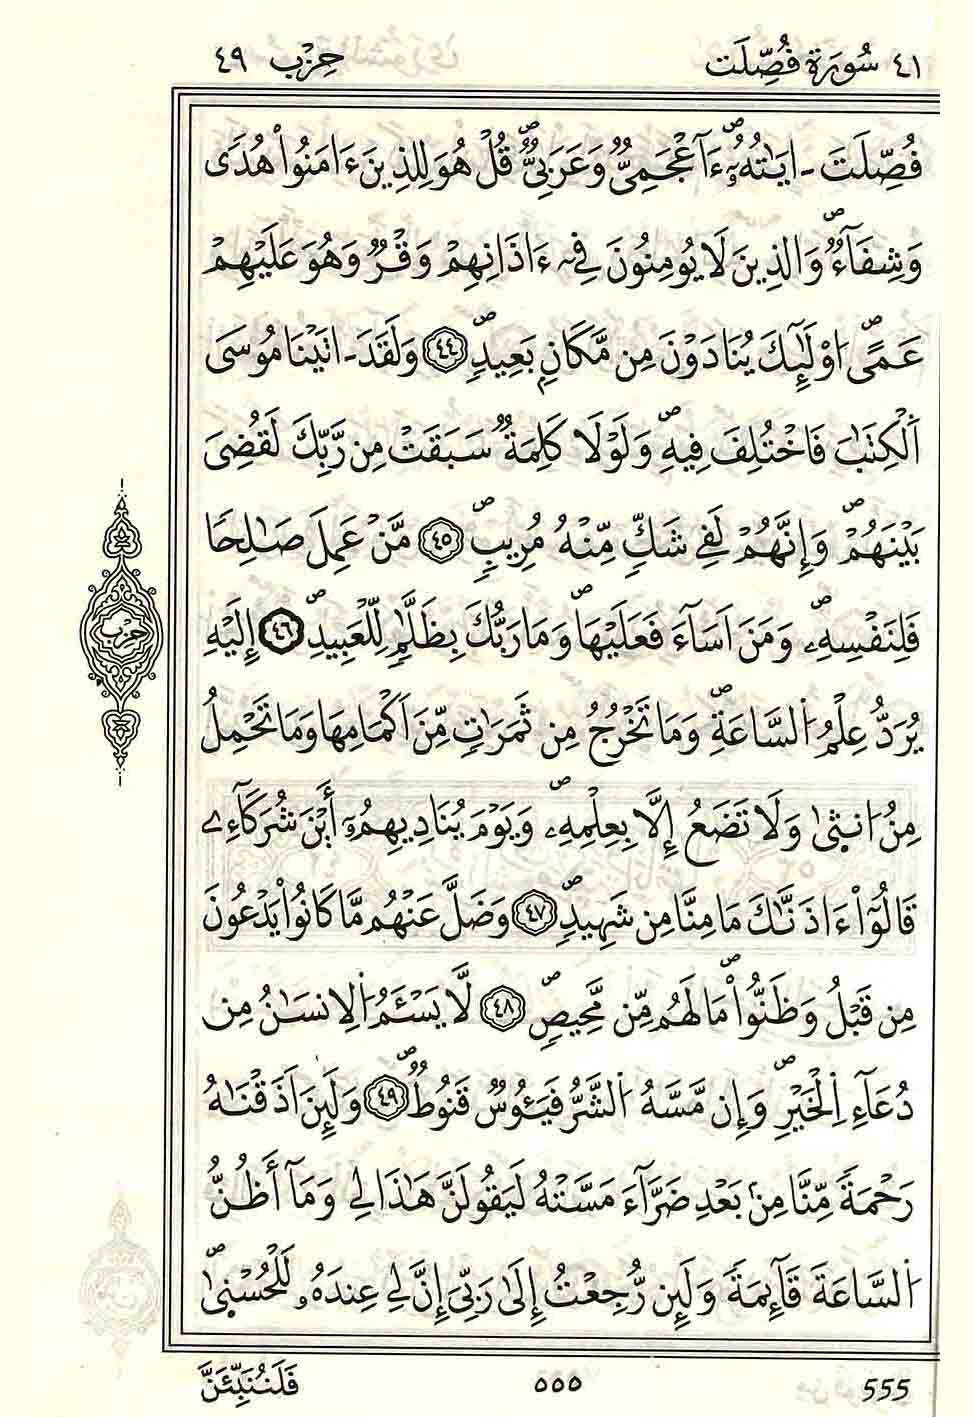 ٤١ سُورَة فُصِّلَت حِزْب ٤٩
فُصِّلَتَ ـ ايَٰتُهُۥٓۖ ءَآعْجَمِيّٞ وَعَرَبِيّٞۖ قُلْ هُوَ لِلذِينَ ءَامَنُواْ هُدٗى
وَشِفَآءٞۖ وَالذِينَ لَا يُومِنُونَ فِےٓ ءَاذَانِهِمْ وَقْرٞ وَهُوَ عَلَيْهِمْ
عَمًىۖ ا۟وْلَٰٓئِكَ يُنَادَوْنَ مِن مَّكَانِۢ بَعِيدٖۖ ٤٤ وَلَقَدَ ـ اتَيْنَا مُوسَى
اَ۬لْكِتَٰبَ فَاخْتُلِفَ فِيهِۖ وَلَوْلَا كَلِمَةٞ سَبَقَتْ مِن رَّبِّكَ لَقُضِىَ
بَيْنَهُمْۖ وَإِنَّهُمْ لَفِے شَكّٖ مِّنْهُ مُرِيبٖۖ ٤٥ مَّنْ عَمِلَ صَٰلِحٗا
فَلِنَفْسِهِۦۖ وَمَنَ اَسَآءَ فَعَلَيْهَاۖ وَمَا رَبُّكَ بِظَلَّٰمٖ لِّلْعَبِيدِۖ ٤٦ إِلَيْهِ
يُرَدُّ عِلْمُ اُ۬لسَّاعَةِۖ وَمَا تَخْرُجُ مِن ثَمَرَٰتٖ مِّنَ اَكْمَامِهَا وَمَا تَحْمِلُ
مِنُ ا۟نث۪يٰ وَلَا تَضَعُ إِلَّا بِعِلْمِهِۦۖ وَيَوْمَ يُنَادِيهِمُۥٓ أَيْنَ شُرَكَآءِے
قَالُوٓاْ ءَاذَنَّٰكَ مَا مِنَّا مِن شَهِيدٖۖ ٤٧ وَضَلَّ عَنْهُم مَّا كَانُواْ يَدْعُونَ
مِن قَبْلُ وَظَنُّواْۖ مَا لَهُم مِّن مَّحِيصٖۖ ٤٨ لَّا يَسْـَٔمُ اُ۬لِانسَٰنُ مِن
دُعَآءِ اِ۬لْخَيْرِۖ وَإِن مَّسَّهُ اُ۬لشَّرُّ فَيَـُٔوسٞ قَنُوطٞۖ ٤٩ وَلَئِنَ اَذَقْنَٰهُ
رَحْمَةٗ مِّنَّا مِنۢ بَعْدِ ضَرَّآءَ مَسَّتْهُ لَيَقُولَنَّ هَٰذَا لِے وَمَآ أَظُنُّ
اُ۬لسَّاعَةَ قَآئِمَةٗ وَلَئِن رُّجِعْتُ إِلَىٰ رَبِّيَ إِنَّ لِے عِندَهُۥ لَلْحُسْن۪يٰۖ
حِزْب
فَلَنُنَبِّئَنَّ ٥٥٥ 555